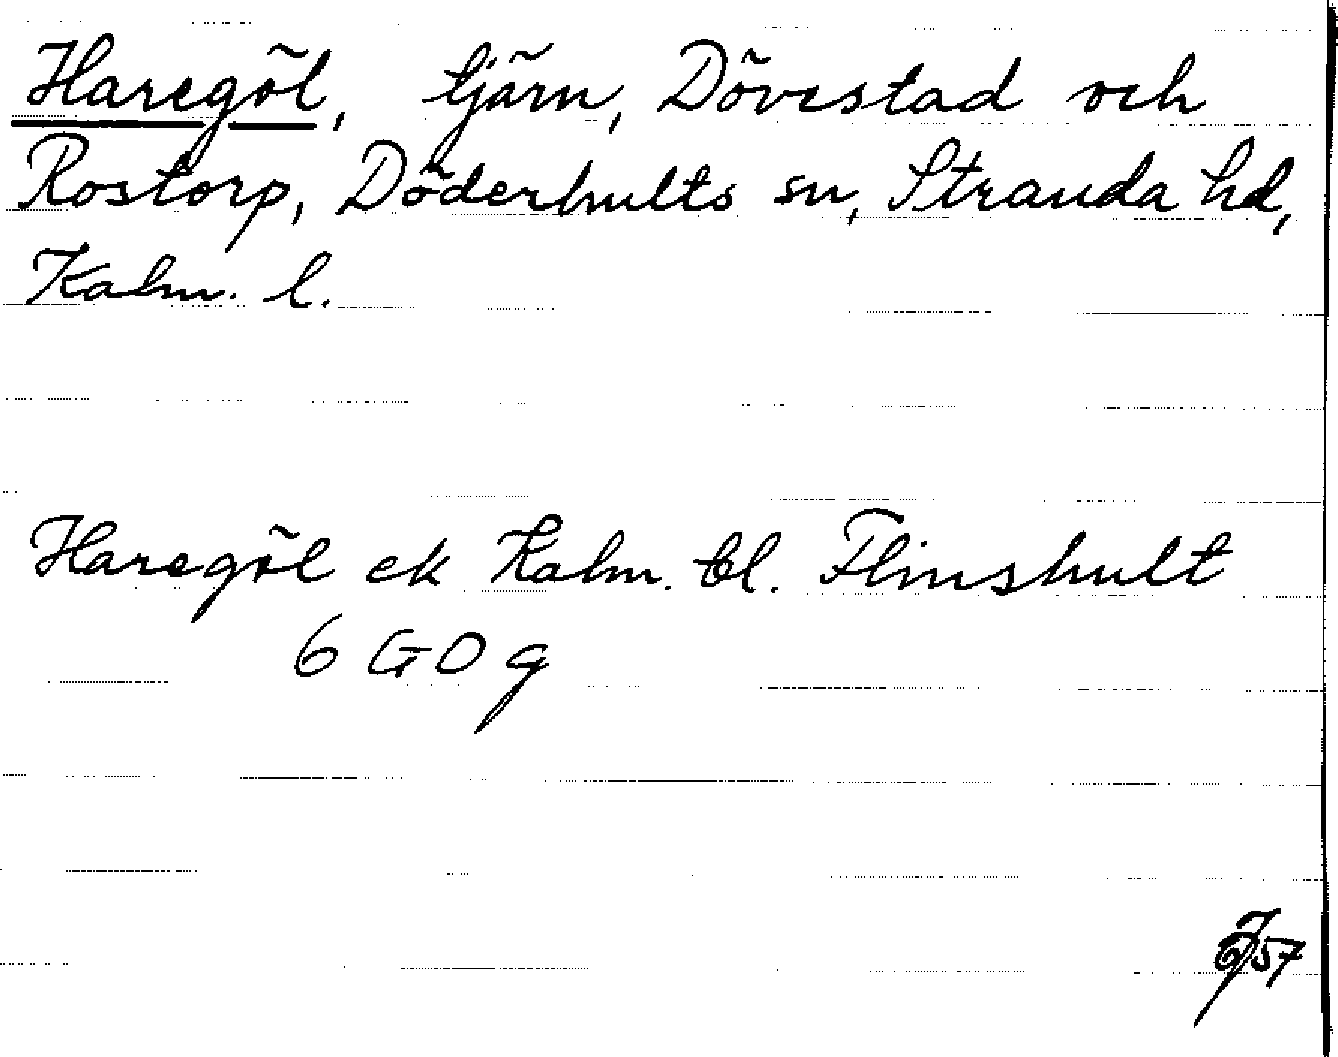 Haregöl, tjärn, Dövestad och
Rostorp, Döderhults sn, Stranda hd,
Kalm. l.
Haregöl ek Kalm. bl. Flinshult
6 GO g